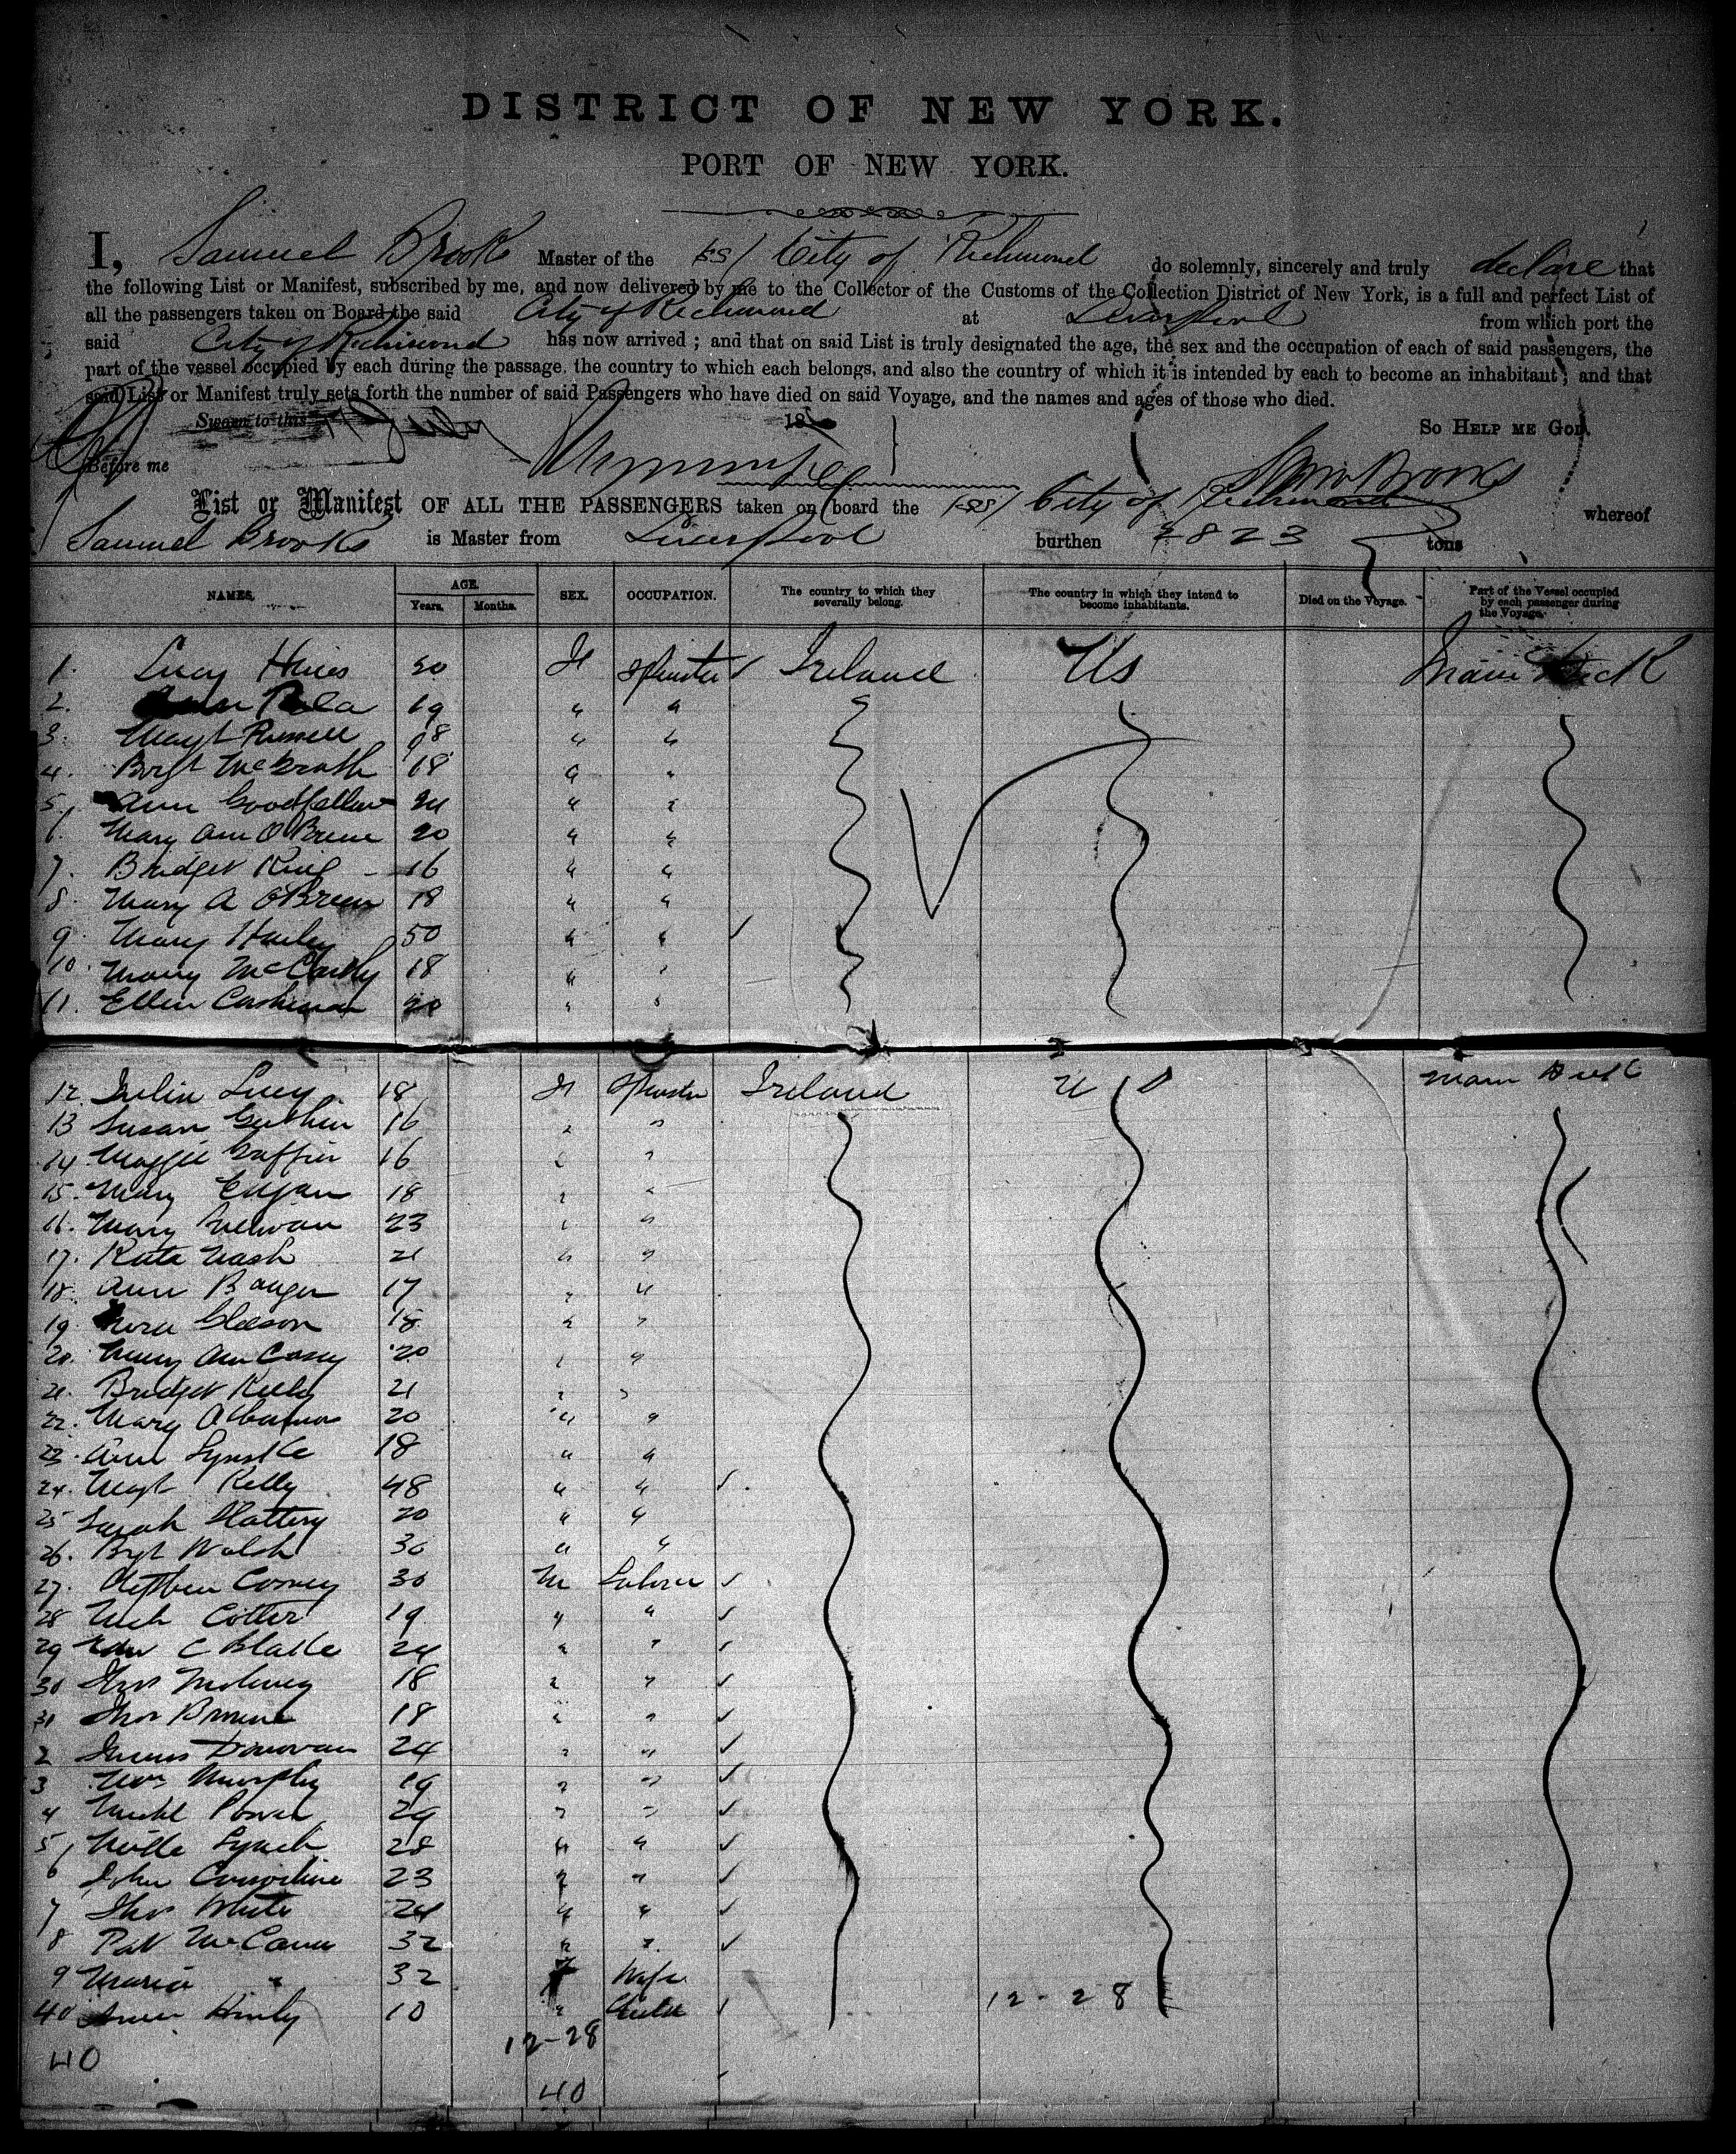 DISTRICT OF NEW YORK.
PORT OF NEW YORK.
I, Samuel Brooks Master of the SS City of Richmond do solemnly, sincerely and truly declare that
the following List or Manifest, subscribed by me, and now delivered by me to the Collector of the Customs of the Collection District of New York, is a full and perfect List of
all the passengers taken on Board the said City of Richmond at Liverpool from which port the
said City of Richmond has now arrived ; and that on said List is truly designated the age, the sex and the occupation of each of said passengers, the
part of the vessel occupied by each during the passage, the country to which each belongs, and also the country of which it is intended by each to become an inhabitant ; and that
said List or Manifest truly sets forth the number of said Passengers who have died on said Voyage, and the names and ages of those who died.
Sworn to this 18 So HELP ME GOD.
Before me Saml Brooks
List or Manifest OF ALL THE PASSENGERS taken on board the SS City of Richmond whereof
Samuel Brooks is Master from Liverpool burthen 2823 tons
NAMES. AGE. Years. Months. SEX. OCCUPATION. The country to which they severally belong. The country in which they intend to become inhabitants. Died on the Voyage. Part of the Vessel occupied by each passenger during the Voyage.
1. Lucy Hines 20 F Spinster Ireland US Main Deck
2. 19 " "
3. Margt Russell 18 " "
4. Bridgt McGrath 18 " "
5. Ann Goodfellow 24 " "
6. Mary Ann O'Brien 20 " "
7. Bridget King 16 " "
8. Mary A O'Brien 18 " "
9. Mary Hurley 50 " "
10. Mary McCarthy 18 " "
11. Ellen Cashman 20 " "
12. Julia Lucy 18 F Spinster Ireland U S Main Deck
13 Susan 16 " "
14 Maggie Griffin 16 " "
15. Mary 18 " "
16. Mary Sullivan 23 " "
17. Kate Nash 21 " "
18. Ann 17 " "
19. Nora Gleeson 18 " "
20. Mary Ann Casey 20 " "
21. Bridget Kelly 21 " "
22. Mary 20 " "
23. Ann 18 " "
24. Margt Kelly 48 " "
25 Sarah Slattery 20 " "
26. Bgt Walsh 30 " "
27. Stephen 30 M Laborer
28 Mich Cotter 19 " "
29 Edw C Blake 24 " "
30 Thos Moloney 18 " "
31 Thos Browne 18 " "
2 James Donovan 24 " "
3 Wm Murphy 19 " "
4 Michl Power 29 " "
5 Lynch 28 " "
6 John Considine 23 " "
7 Thos White 24 " "
8 Pat McCann 32 " "
9 Maria " 32 F Wife
40 Hurly 10 " Child
12-28 12-28
40 40